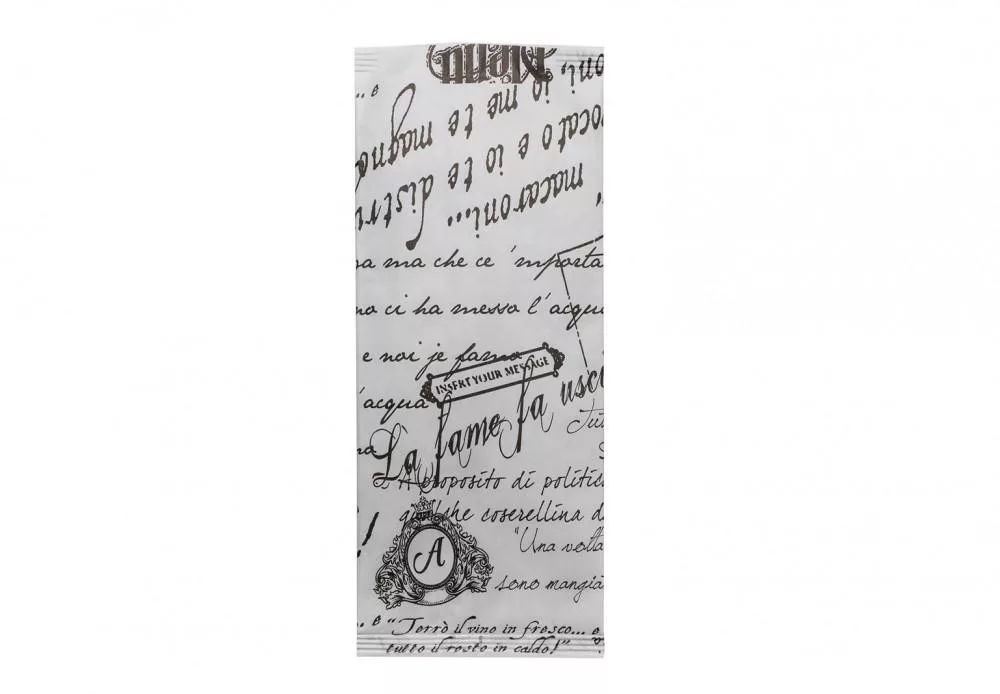 Menu
.. e
oni,
io me te magno
ocato e io te distru
macaroni...
a ma che ce 'mporta
no ci ha messo l'acqua
e noi je famo
INSERT YOUR MESSAGE
'acqua
La fame fa usci
na
A proposito di politic
qualche coserellina d
"Una volta
A
sono mangia
.. e "Terrò il vino in fresco... e
tutto il resto in caldo!"